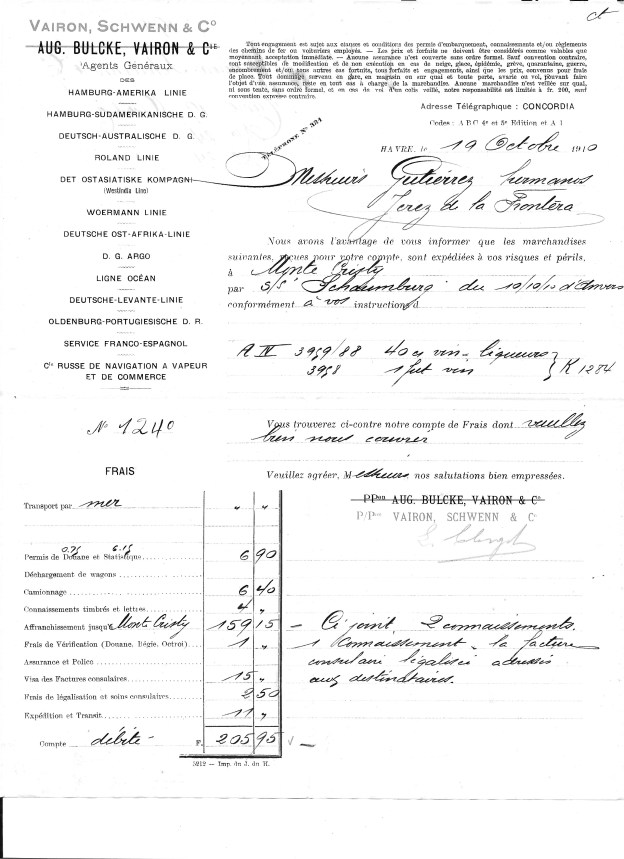 VAIRON, SCHWENN & Cº
AUG. BULCKE, VAIRON & Cie
Agents Généraux
DES
HAMBURG-AMERIKA LINIE
HAMBURG-SUDAMERIKANISCHE D. G.
DEUTSCH-AUSTRALISCHE D. G.
ROLAND LINIE
DET OSTASIATISKE KOMPAGNI
(Westindia Line)
WOERMANN LINIE
DEUTSCHE OST-AFRIKA-LINIE
D. G. ARGO
LIGNE OCÉAN
DEUTSCHE-LEVANTE-LINIE
OLDENBURG-PORTUGIESISCHE D. R.
SERVICE FRANCO-ESPAGNOL
Cie RUSSE DE NAVIGATION A VAPEUR
ET DE COMMERCE
Nº 1240
ct
Tout engagement est sujet aux clauses et conditions des permis d'embarquement, connaissements et/ou règlements
des chemins de fer ou voituriers employés. — Les prix et forfaits ne doivent être considérés comme valables que
moyennant acceptation immédiate. — Aucune assurance n'est couverte sans ordre formel. Sauf convention contraire,
sont susceptibles de modification et de non exécution en cas de neige, glace, épidémie, grève, quarantaine, guerre,
encombrement et/ou tous autres cas fortuits, tous forfaits et engagements, ainsi que les prix, convenus pour frais
de place. Tout dommage survenu en gare, en magasin ou sur quai et toute perte, avarie ou vol, pouvant faire
l'objet d'un assurance, reste en tout cas à charge de la marchandise. Aucunes marchandises n'est veillée sur quai,
ni sous tente, sans ordre formel, et en cas de vol d'un colis veillé, notre responsabilité est limitée à fr. 200, sauf
convention expresse contraire.
Adresse Télégraphique : CONCORDIA
Codes : A B C 4e et 5e Edition et A 1
TÉLÉPHONE Nº 331
HAVRE, le 19 Octobre 1910
Messieurs Gutierrez hermanos
Jerez de la Frontera
Nous avons l'avantage de vous informer que les marchandises
suivantes, reçues pour votre compte, sont expédiées à vos risques et périls,
à Monte Cristy
par S/S Schaumburg du 10/10/10 d'Anvers
conformément à vos instructions.
A IV 3959/88 40 cs vin-liqueurs
3958 1 fut vin } K 1284
Vous trouverez ci-contre notre compte de Frais dont veuillez
bien nous couvrir
Veuillez agréer, Messieurs nos salutations bien empressées.
PPon AUG. BULCKE, VAIRON & Cº
P/Pon VAIRON, SCHWENN & Cº
FRAIS
Transport par mer " "
0.75 6.15
Permis de Douane et Statistique 6 90
Déchargement de wagons
Camionnage 6 40
Connaissements timbrés et lettres 4 "
Affranchissement jusqu'à Monte Cristy 159 15
Frais de Vérification (Douane, Régie, Octroi) 1 "
Assurance et Police
Visa des Factures consulaires 15 "
Frais de légalisation et soins consulaires 2 50
Expédition et Transit 11 "
Compte débité F. 205 95
5212 — Imp. du J. du H.
— Ci joint 2 connaissements.
1 connaissement - la facture
consulaire légalisée adressés
aux destinataires.